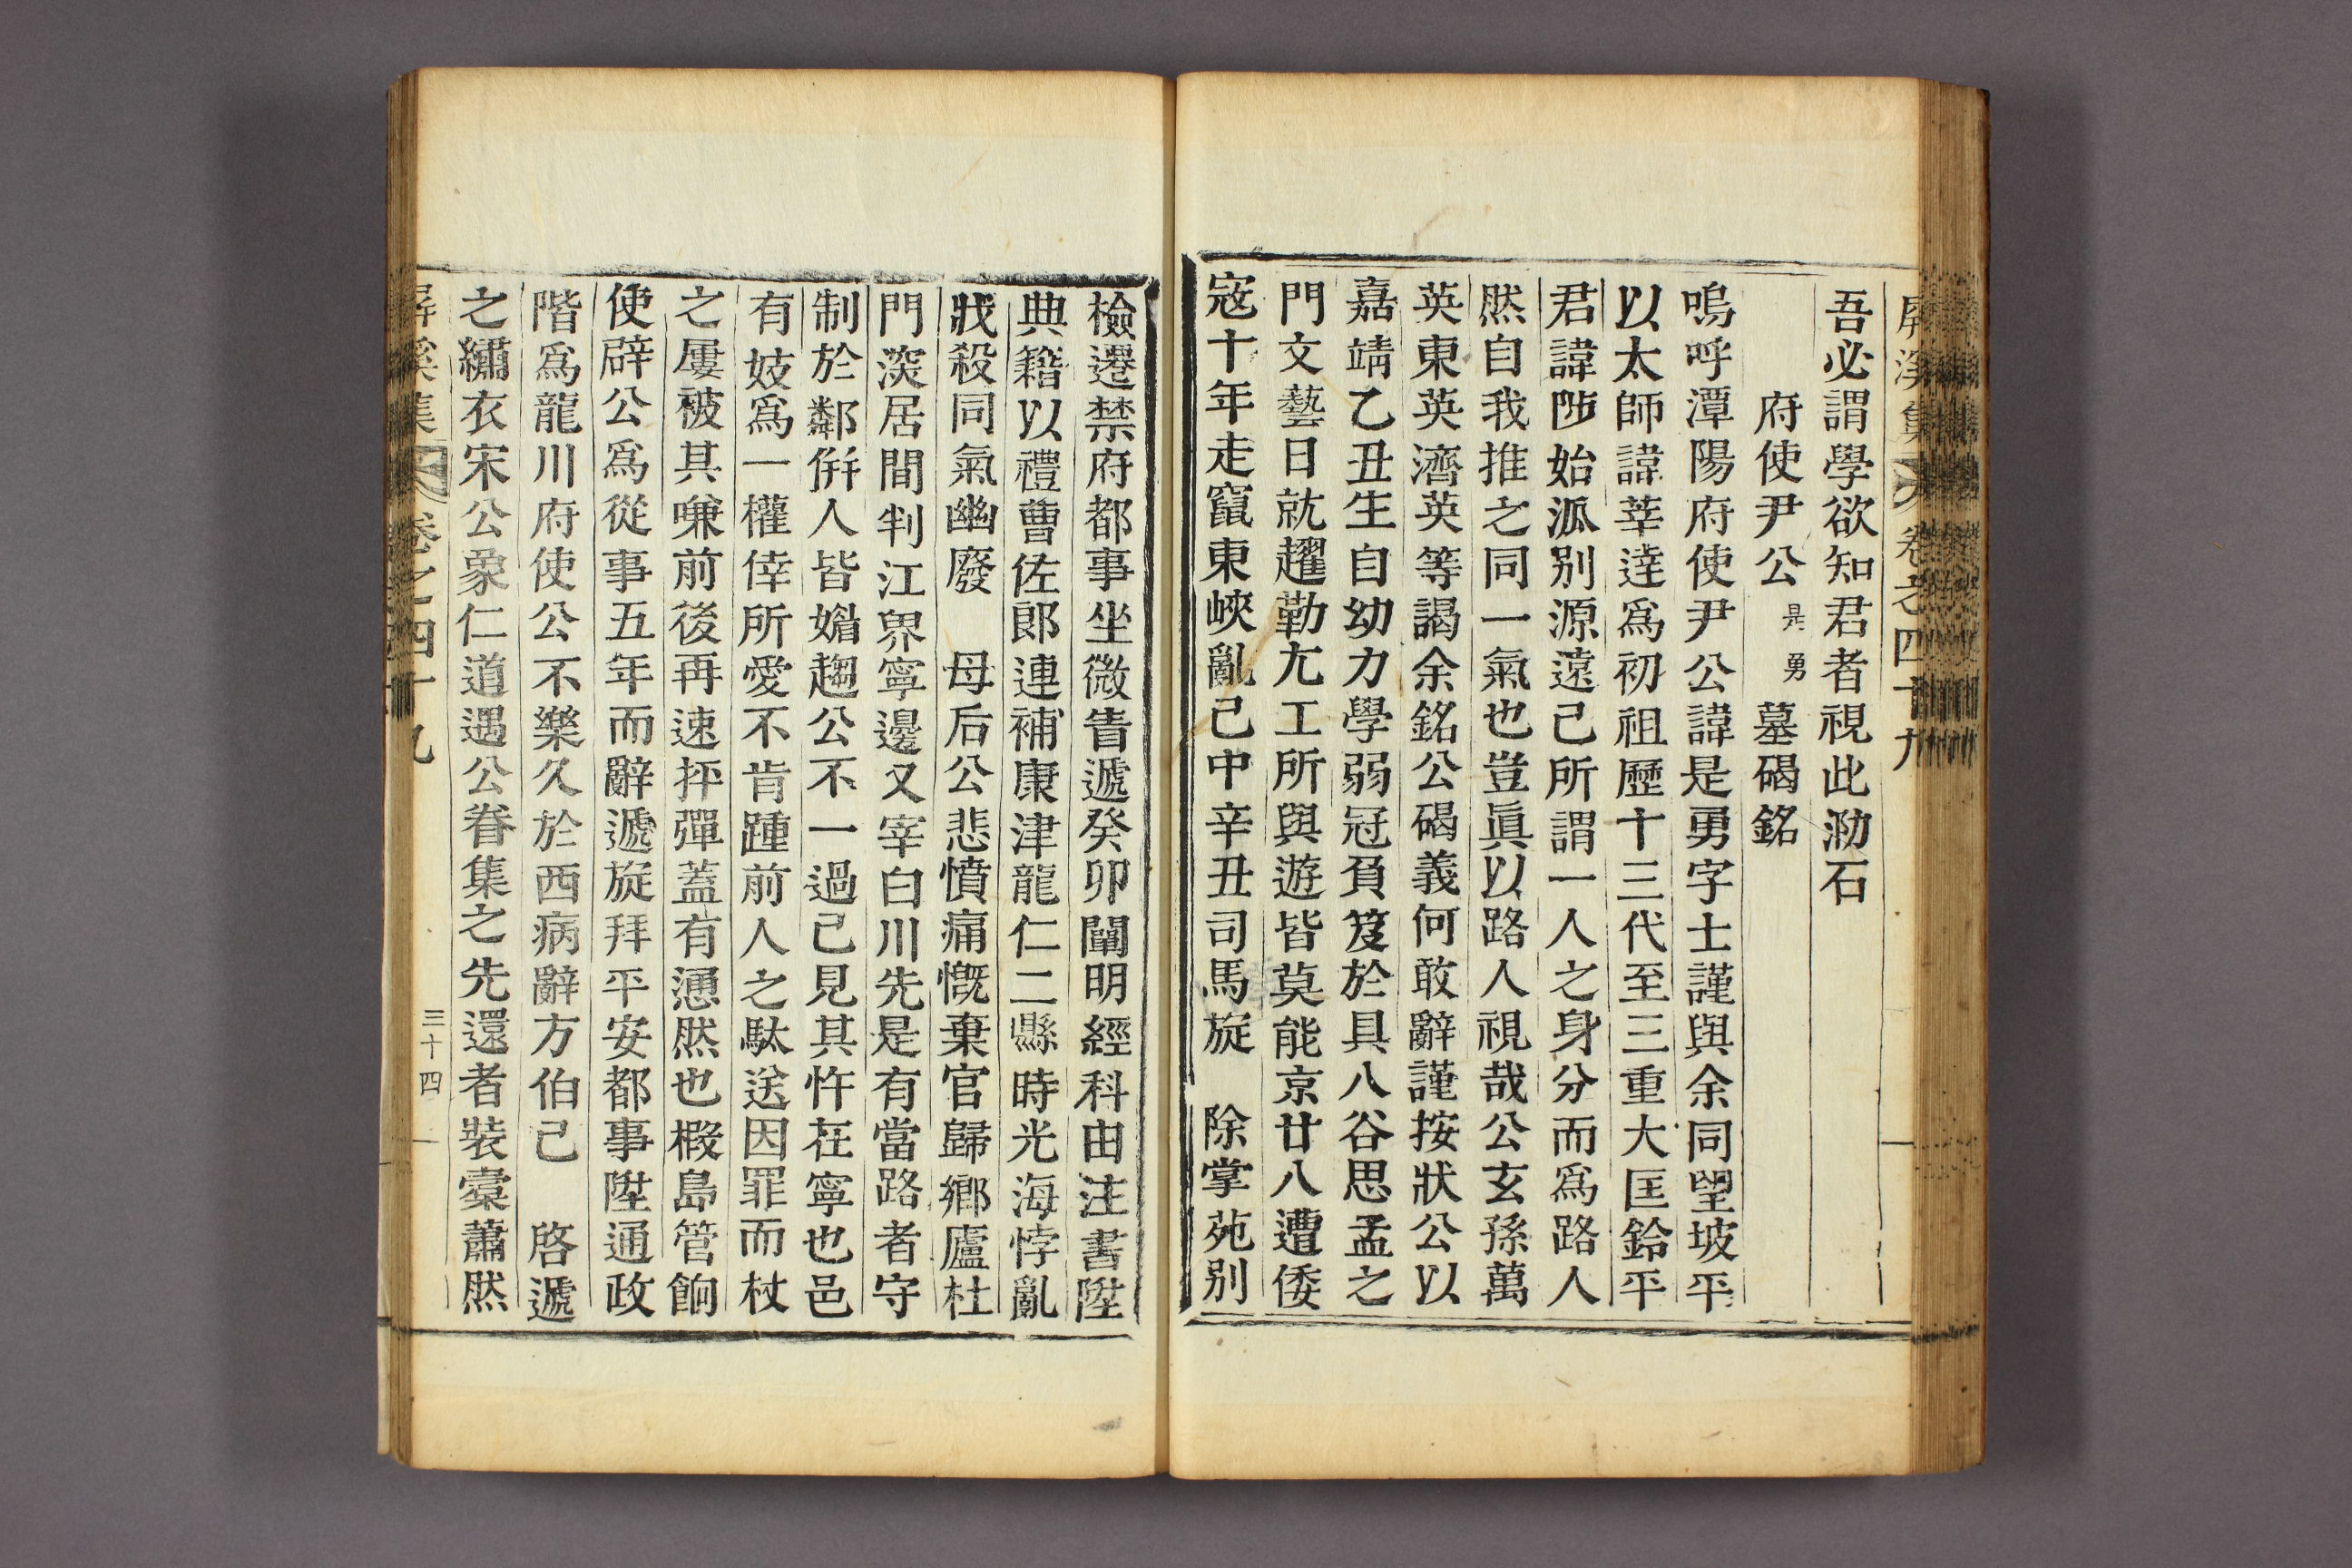 屏溪集 卷之四十九
吾必謂學欲知君者視此泐石
府使尹公是勇墓碣銘
嗚呼潭陽府使尹公諱是勇字士謹與余同望坡平
以太師諱莘達爲初祖歷十三代至三重大匡鈴平
君諱陟始派别源遠己所謂一人之身分而爲路人
然自我推之同一氣也豈眞以路人視哉公玄孫萬
英東英濟英等謁余銘公碣義何敢辭謹按狀公以
嘉靖乙丑生自幼力學弱冠負笈於具八谷思孟之
門文藝日就趯勒尢工所與遊皆莫能京廿八遭倭
寇十年走竄東峽亂己中辛丑司馬旋 除掌苑别
檢遷禁府都事坐微眚遞癸卯闡明經科由注書陞
典籍以禮曹佐郎連補康津龍仁二縣時光海悖亂
戕殺同氣幽廢 母后公悲憤痛慨棄官歸鄕廬杜
門深居間判江界寧邊又宰白川先是有當路者守
制於鄰倂人皆媚趨公不一過己見其忤在寧也邑
有妓爲一權倖所愛不肯踵前人之馱送因罪而杖
之屢被其嗛前後再速抨彈蓋有慂然也椵島管餉
使辟公爲從事五年而辭遞旋拜平安都事陞通政
階爲龍川府使公不樂久於西病辭方伯己 啓遞
之繡衣宋公象仁道遇公眷集之先還者裝橐蕭然
屏溪集 卷之四十九 三十四